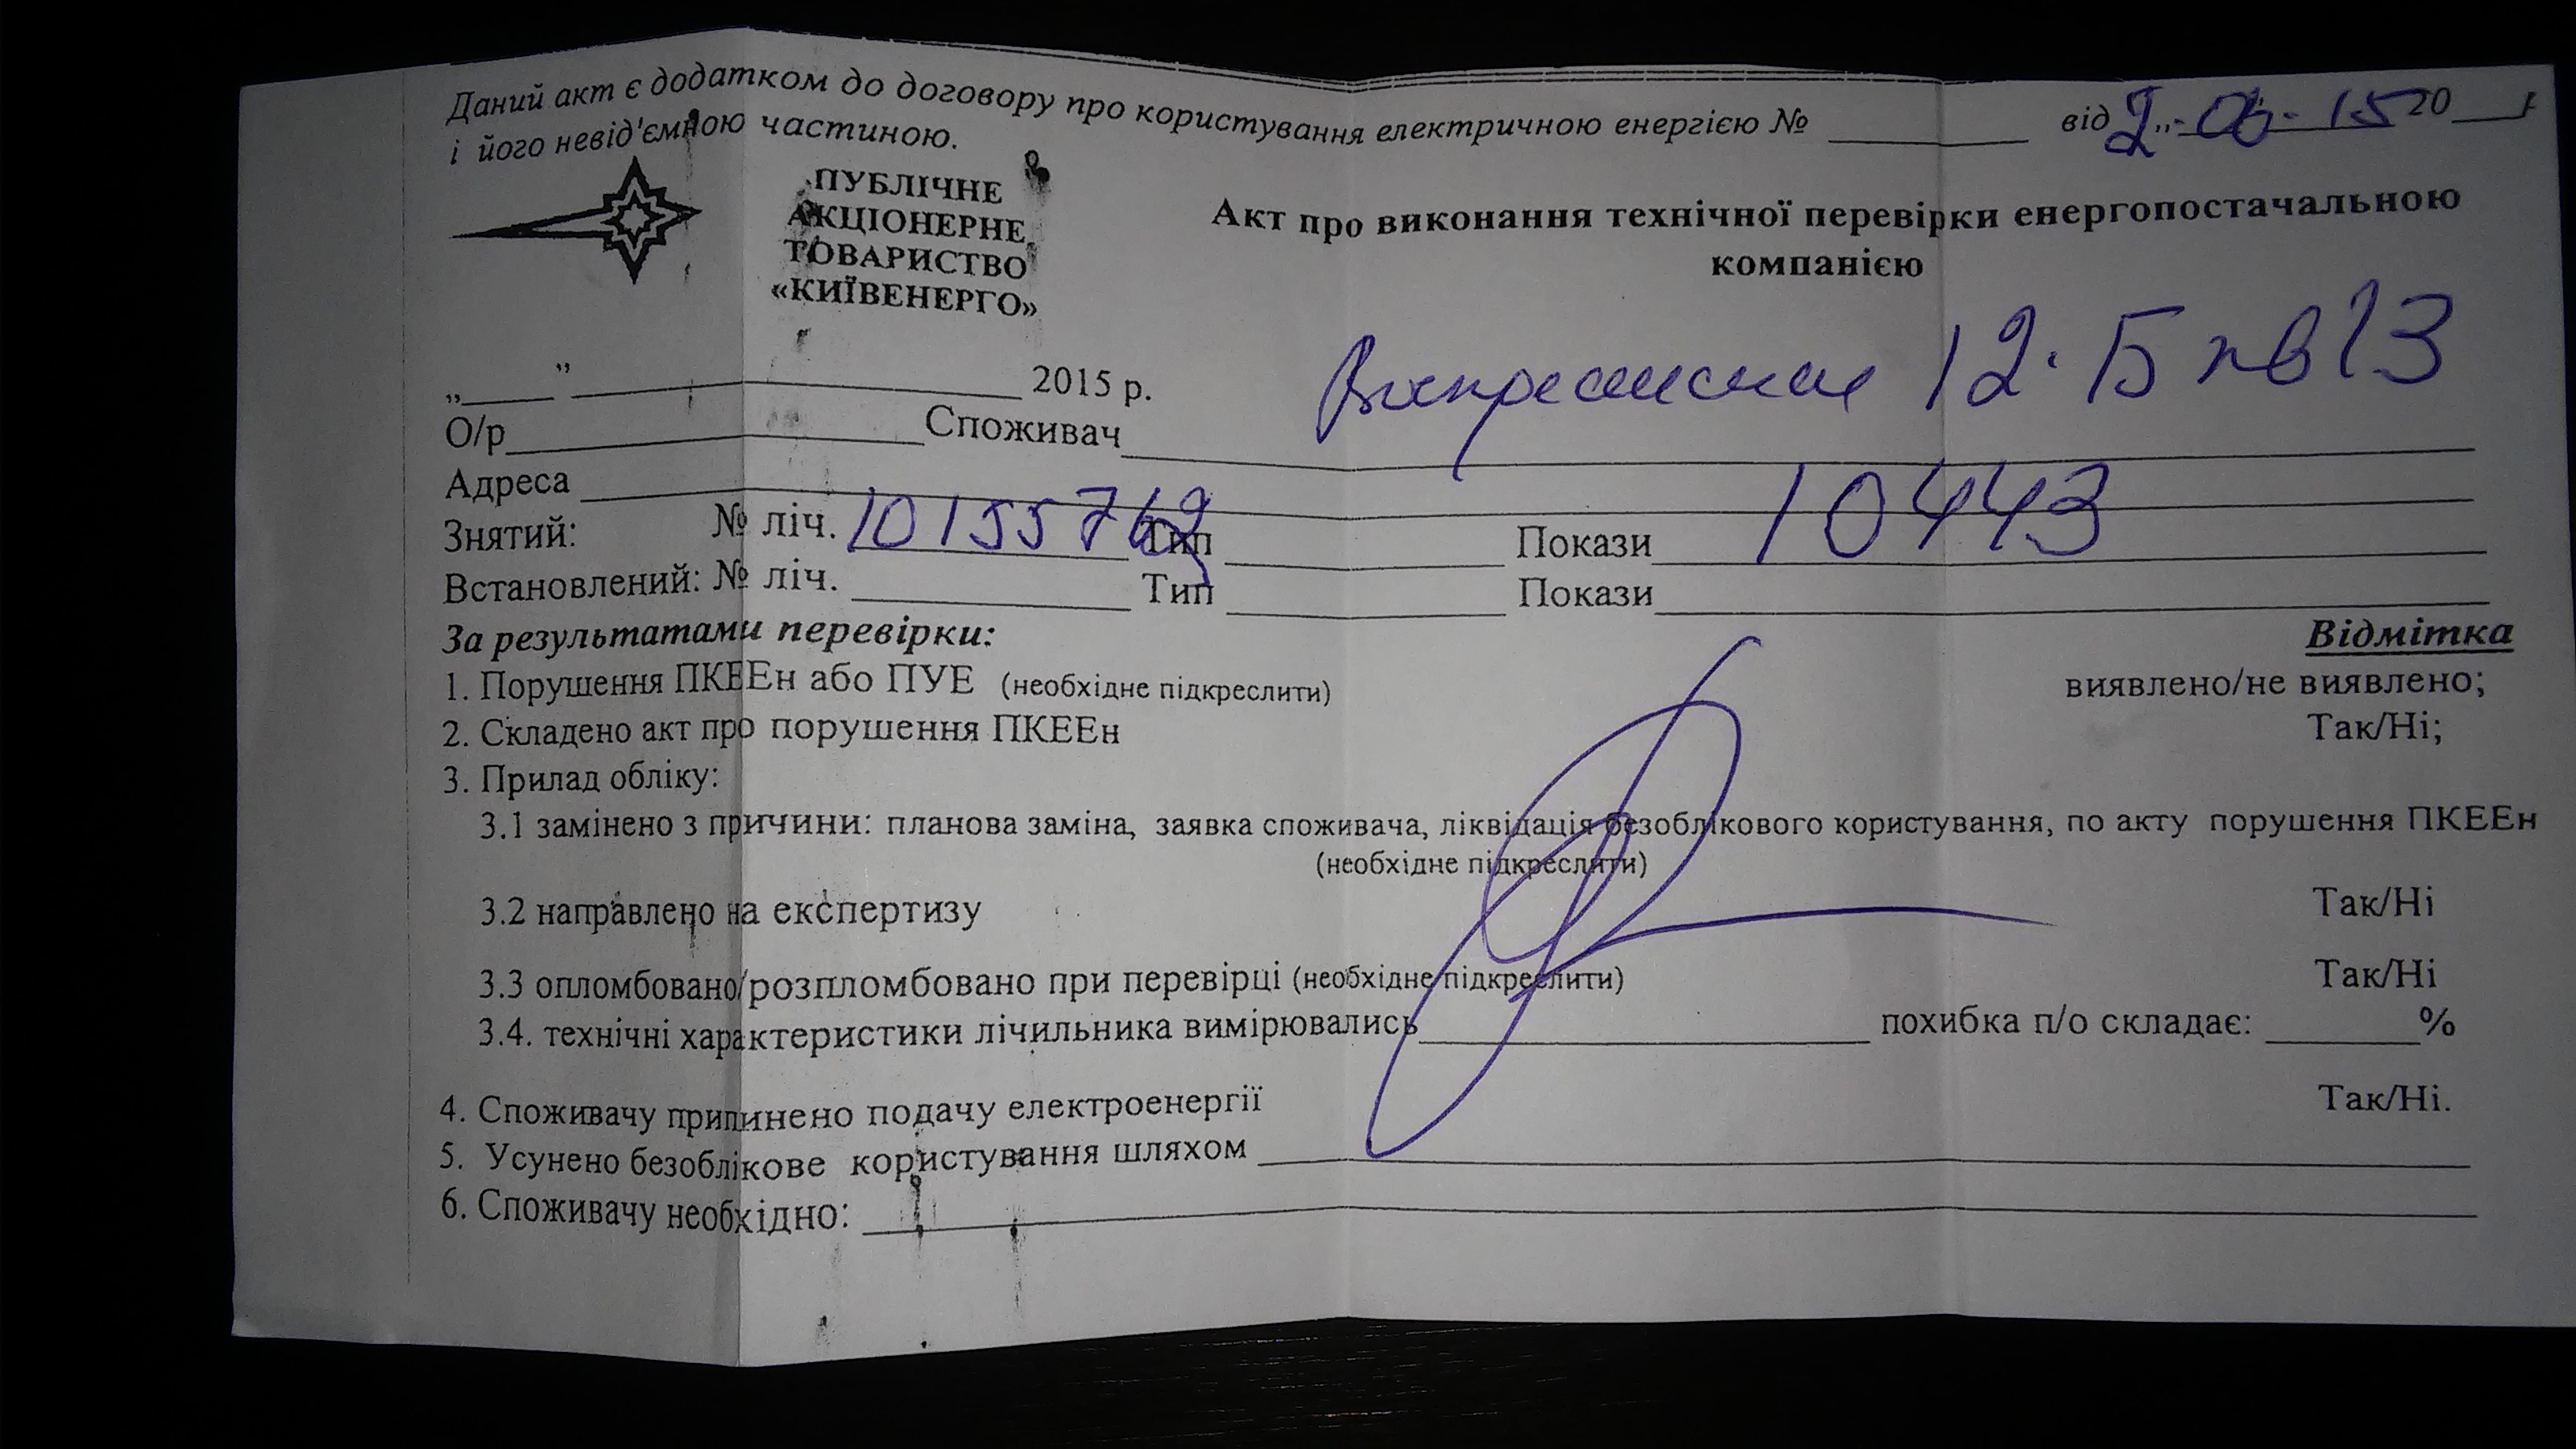 Даний акт є додатком до договору про користування електричною енергією № ________ від 2.-06.-15 20___
і його невід'ємною частиною.
ПУБЛІЧНЕ
АКЦІОНЕРНЕ
ТОВАРИСТВО
«КИЇВЕНЕРГО»
Акт про виконання технічної перевірки енергопостачальною
компанією
„____” ______________ 2015 р.
12. Б кв 13
О/р______________Споживач______________
Адреса ______________
Знятий: № ліч. 10155762 Тип ________ Покази 10443
Встановлений: № ліч. ________ Тип ________ Покази________
За результатами перевірки: Відмітка
1. Порушення ПКЕЕн або ПУЕ (необхідне підкреслити) виявлено/не виявлено;
2. Складено акт про порушення ПКЕЕн Так/Ні;
3. Прилад обліку:
3.1 замінено з причини: планова заміна, заявка споживача, ліквідація безоблікового користування, по акту порушення ПКЕЕн
(необхідне підкреслити)
3.2 направлено на експертизу Так/Ні
3.3 опломбовано/розпломбовано при перевірці (необхідне підкреслити) Так/Ні
3.4. технічні характеристики лічильника вимірювались________ похибка п/о складає: ______%
4. Споживачу припинено подачу електроенергії Так/Ні.
5. Усунено безоблікове користування шляхом ______________
6. Споживачу необхідно: ______________